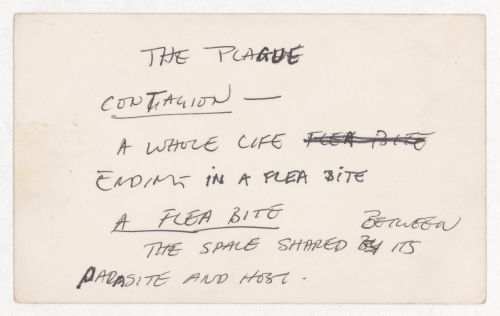 THE PLAGUE
CONTAGION —
A WHOLE LIFE FLEA BITE
ENDING IN A FLEA BITE
A FLEA BITE
THE SPACE SHARED BY BETWEEN ITS
PARASITE AND HOST.